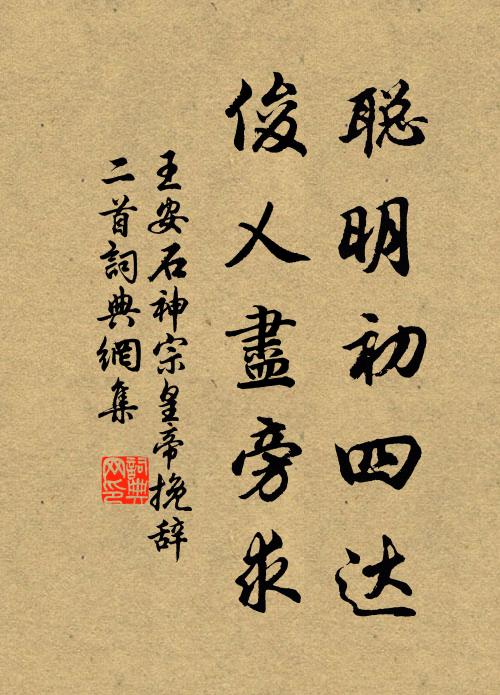 聪明初四达
俊乂盡旁求
王安石神宗皇帝挽辞
二首詞典網集
詞典
网印